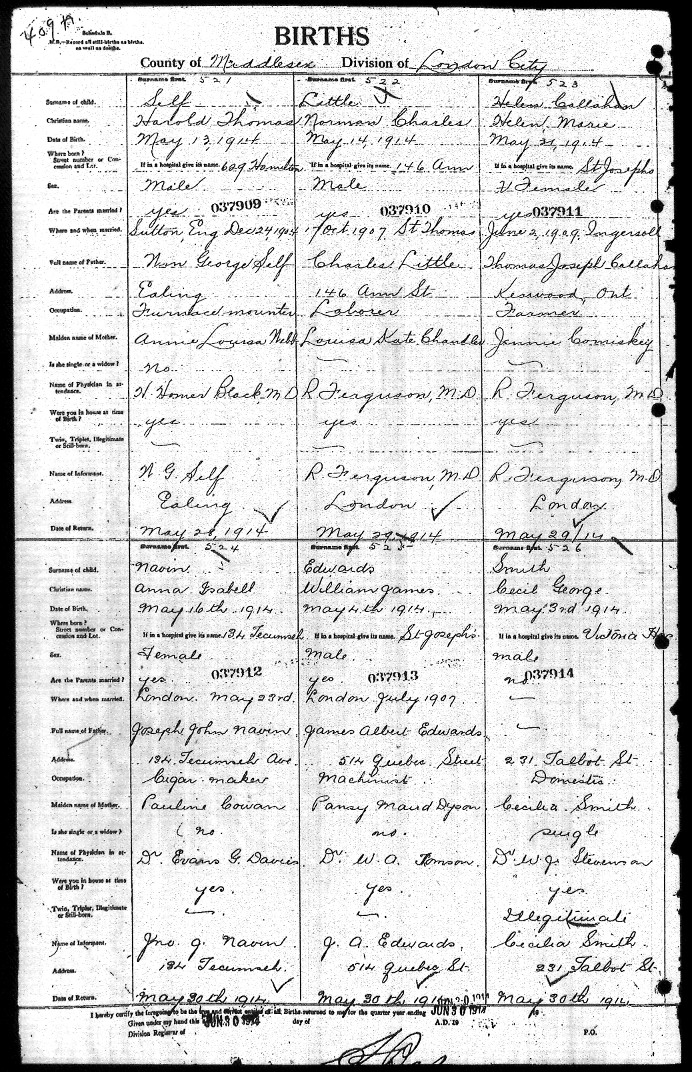 409
Schedule B.
N.B.—Record all still-births as births, as well as deaths.
BIRTHS
County of Middlesex Division of London City
Surname first. 521 Surname first. 522 Surname first. 523
Surname of child. Self Little Helen Callahan
Christian name. Harold Thomas Norman Charles Helen, Marie
Date of Birth. May 13, 1914 May 14, 1914 May 21, 1914
Where born?
Street number or Concession and Lot. If in a hospital give its name. 609 Hamilton If in a hospital give its name. 146 Ann If in a hospital give its name. St Josephs
Sex. Male Male Female
Are the Parents married? yes 037909 yes 037910 yes 037911
Where and when married. Sutton, Eng Dec 24 1904 17 Oct 1907 St Thomas June 2, 1909. Ingersoll
Full name of Father. Wm George Self Charles Little Thomas Joseph Callahan
Address. Ealing 146 Ann St Kerwood, Ont
Occupation. Furnace mounter Laborer Farmer
Maiden name of Mother. Annie Louisa Webb Louisa Kate Chandler Jennie Comiskey
Is she single or a widow? no
Name of Physician in attendance. H. Homer Black M D R Ferguson, M.D. R. Ferguson, M.D.
Were you in house at time of Birth? yes yes yes
Twin, Triplet, Illegitimate or Still-born.
Name of Informant. W G. Self R. Ferguson, M.D R. Ferguson, M D
Address. Ealing London London
Date of Return. May 28, 1914 May 29, 1914 May 29/14
Surname first. 524 Surname first. 525 Surname first. 526
Surname of child. Navin Edwards Smith
Christian name. Anna Isabell William James Cecil George
Date of Birth. May 16th 1914 May 4th 1914 May 3rd 1914
Where born?
Street number or Concession and Lot. If in a hospital give its name. 134 Tecumseh If in a hospital give its name. St Joseph's If in a hospital give its name. Victoria Hos
Sex. Female Male male
Are the Parents married? yes 037912 yes 037913 no 037914
Where and when married. London. May 23rd London July 1907
Full name of Father. Joseph John Navin James Albert Edwards
Address. 134 Tecumseh Ave. 514 Quebec Street 231 Talbot St
Occupation. Cigar maker Machinist Domestic
Maiden name of Mother. Pauline Cowan Pansy Maud Dyson Cecilia Smith
Is she single or a widow? no. no. single
Name of Physician in attendance. Dr Evans G. Davies Dr W. A. Tomson Dr W. J. Stevenson
Were you in house at time of Birth? yes. yes. yes
Twin, Triplet, Illegitimate or Still-born. Illegitimate
Name of Informant. Jno J. Navin J. A. Edwards. Cecilia Smith
Address. 134 Tecumseh. 514 Quebec St. 231 Talbot St.
Date of Return. May 30th 1914 May 30th 1914 May 30th 1914
I hereby certify the foregoing to be the true and correct entries of all Births returned to me for the quarter year ending JUN 30 1914 19
Given under my hand this JUN 30 1914 day of A.D. 19
Division Registrar of P.O.